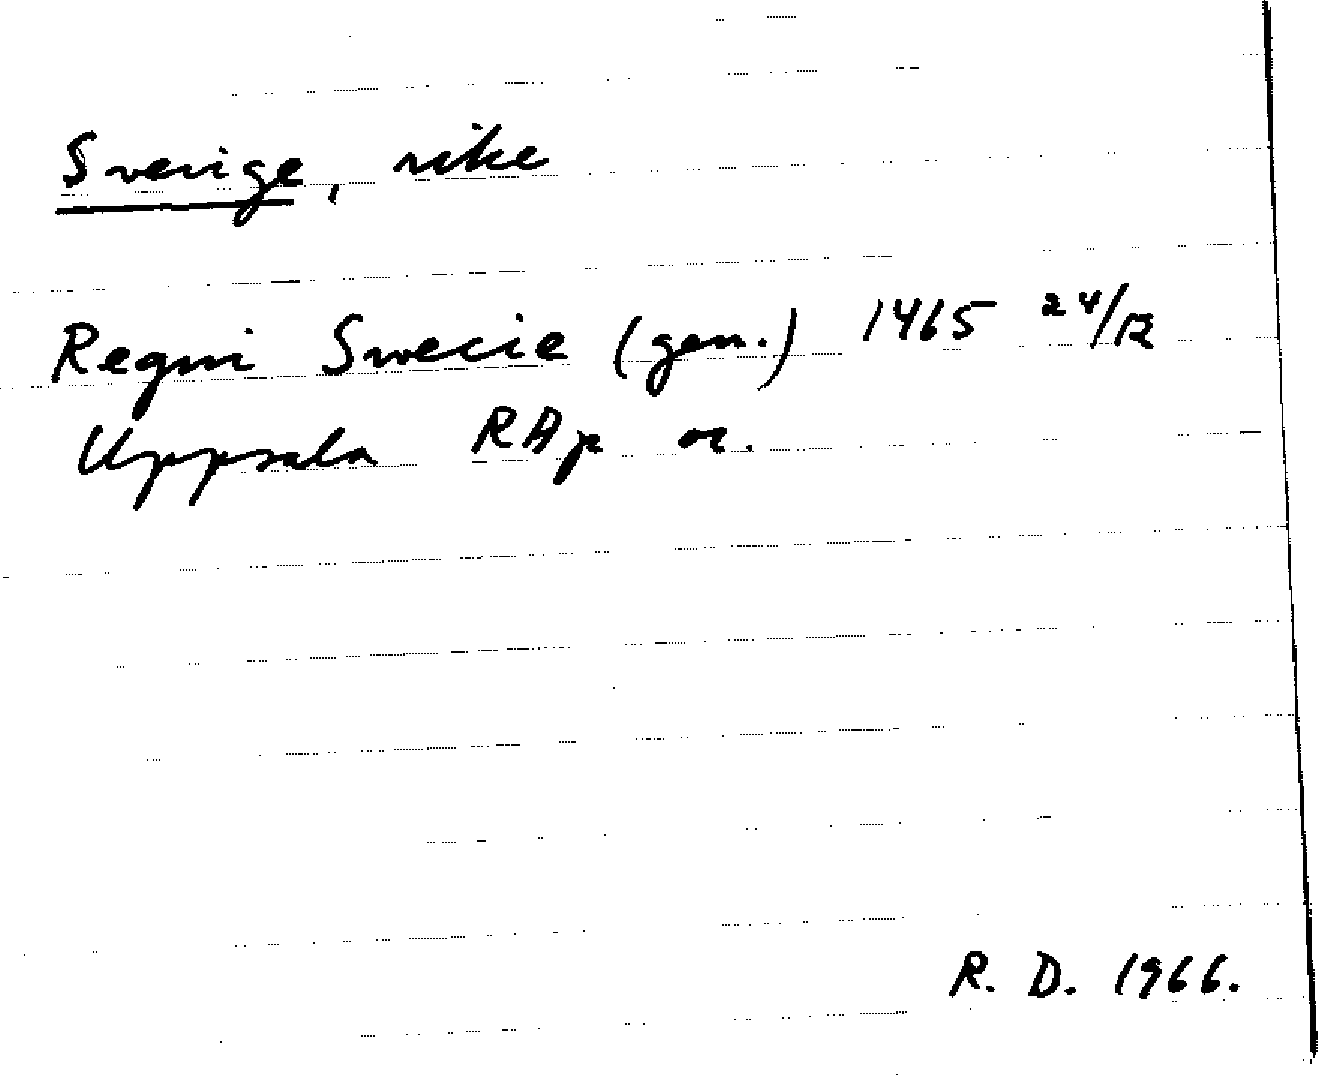 Sverige, rike
Regni Swecie (gen.) 1465 24/12
Uppsala RAp or.
R. D. 1966.